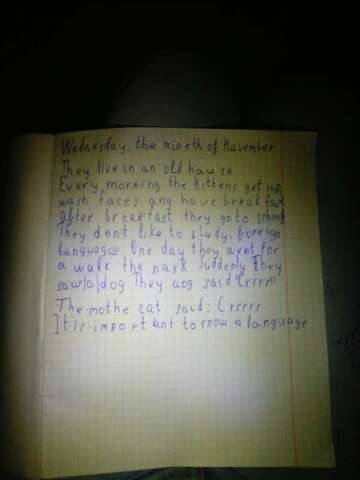 Wednesday, the nineth of Navember
They live in an old hause
Every morning the kittens get up,
wash faces ang have breakfast
after breakfast they go to school
They dont like to study, foreign
languages One day they went for
a walk the park Suddenly They
saw/a/dog They aog said "Crrrrr"
The mothe cat said: Crrrrr
It is important to know a language